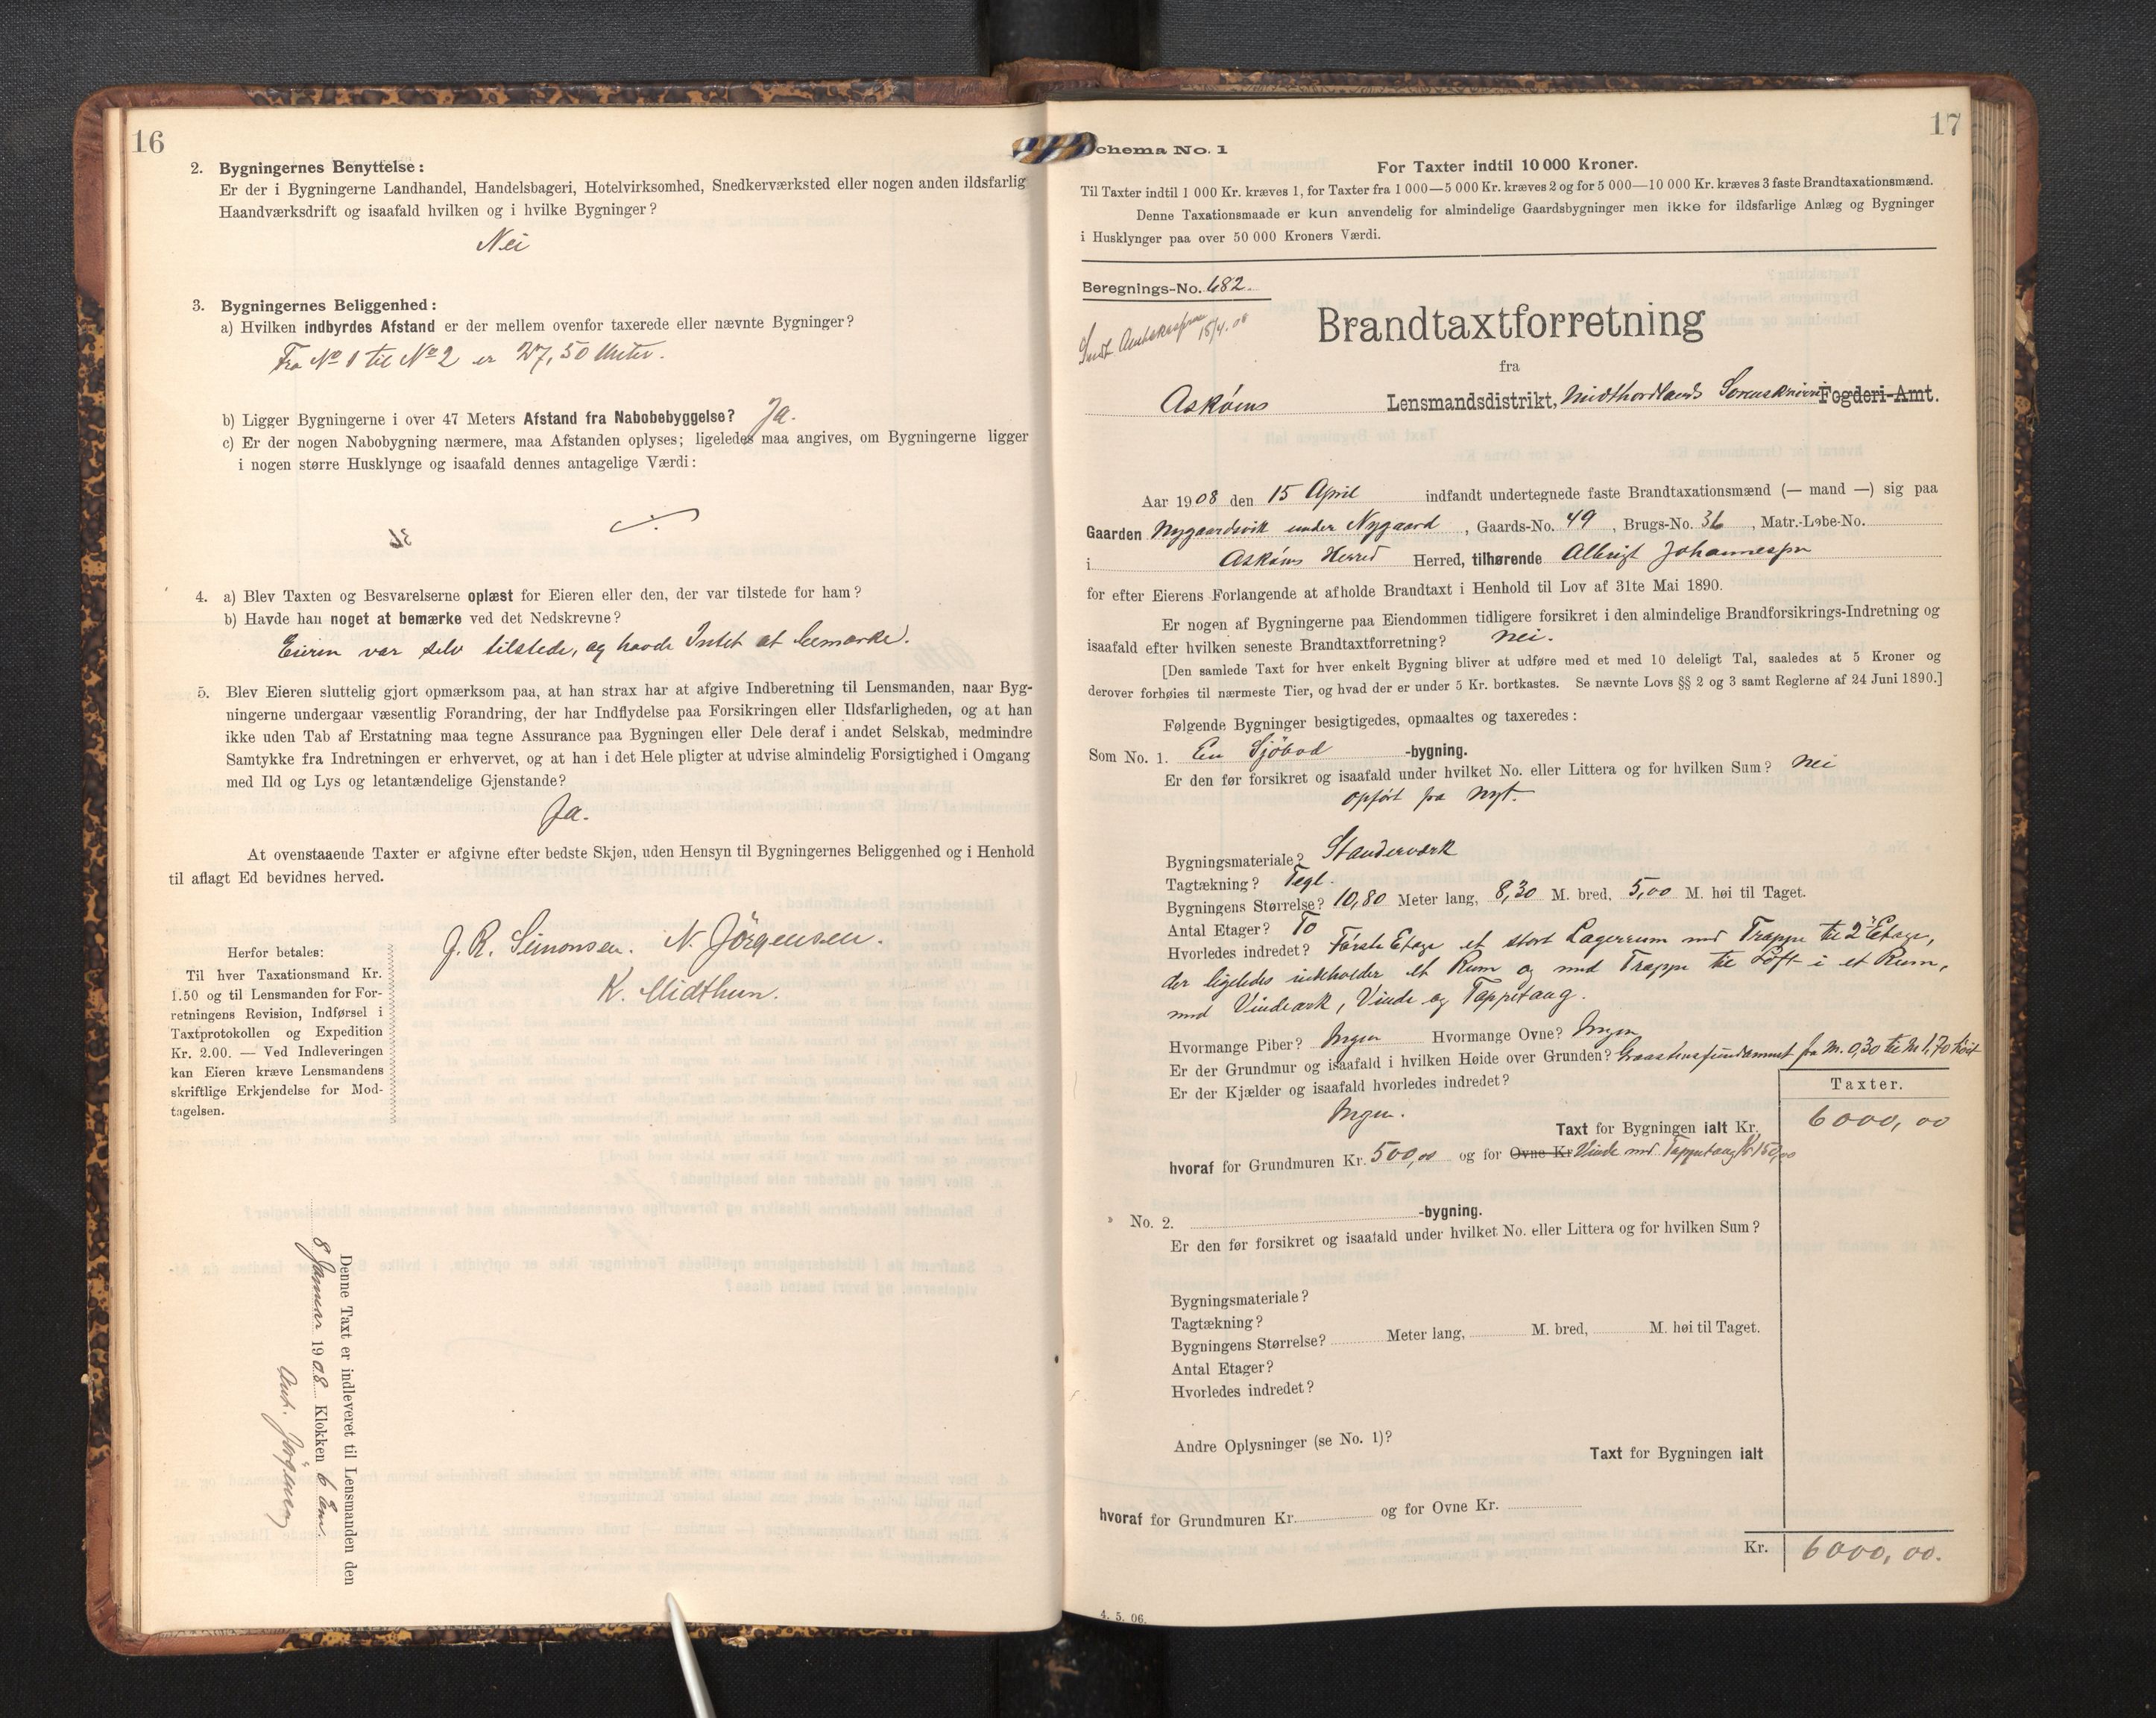 16
2. Bygningernes Benyttelse:
Er der i Bygningerne Landhandel, Handelsbageri, Hotelvirksomhed, Snedkerværksted eller nogen anden ildsfarlig
Haandværksdrift og isaafald hvilken og i hvilke Bygninger?
Nei
3. Bygningernes Beliggenhed:
a) Hvilken indbyrdes Afstand er der mellem ovenfor taxerede eller nævnte Bygninger?
Fra No 1 til No 2 er 27,50 Meter.
b) Ligger Bygningerne i over 47 Meters Afstand fra Nabobebyggelse? Ja.
c) Er der nogen Nabobygning nærmere, maa Afstanden oplyses; ligeledes maa angives, om Bygningerne ligger
i nogen større Husklynge og isaafald dennes antagelige Værdi:
4. a) Blev Taxten og Besvarelserne oplæst for Eieren eller den, der var tilstede for ham?
b) Havde han noget at bemærke ved det Nedskrevne?
Eieren var selv tilstede, og havde Intet at bemærke.
5. Blev Eieren sluttelig gjort opmærksom paa, at han strax har at afgive Indberetning til Lensmanden, naar Byg-
ningerne undergaar væsentlig Forandring, der har Indflydelse paa Forsikringen eller Ildsfarligheden, og at han
ikke uden Tab af Erstatning maa tegne Assurance paa Bygningen eller Dele deraf i andet Selskab, medmindre
Samtykke fra Indretningen er erhvervet, og at han i det Hele pligter at udvise almindelig Forsigtighed i Omgang
med Ild og Lys og letantændelige Gjenstande?
Ja.
At ovenstaaende Taxter er afgivne efter bedste Skjøn, uden Hensyn til Bygningernes Beliggenhed og i Henhold
til aflagt Ed bevidnes herved.
J. R. Simonsen. N. Jörgensen.
K. Midthun.
Herfor betales:
Til hver Taxationsmand Kr.
1.50 og til Lensmanden for For-
retningens Revision, Indførsel i
Taxtprotokollen og Expedition
Kr. 2.00. — Ved Indleveringen
kan Eieren kræve Lensmandens
skriftlige Erkjendelse for Mod-
tagelsen.
Denne Taxt er indleveret til Lensmanden den
8 Januar 1908 Klokken 6 Em.
Ant. Jørgensen
17
Schema No. 1
For Taxter indtil 10 000 Kroner.
Til Taxter indtil 1 000 Kr. kræves 1, for Taxter fra 1 000—5 000 Kr. kræves 2 og for 5 000—10 000 Kr. kræves 3 faste Brandtaxationsmænd.
Denne Taxationsmaade er kun anvendelig for almindelige Gaardsbygninger men ikke for ildsfarlige Anlæg og Bygninger
i Husklynger paa over 50 000 Kroners Værdi.
Beregnings-No. 682.
15/4.08
Brandtaxtforretning
fra
Askøens Lensmandsdistrikt, Midthordlands Sorenskriveri Fogderi-Amt.
Aar 1908 den 15 April indfandt undertegnede faste Brandtaxationsmænd (— mand —) sig paa
Gaarden Nygaardsvik under Nygaard, Gaards-No. 49, Brugs-No. 36, Matr.-Løbe-No.
i Askøens Herred Herred, tilhørende Albrigt Johannessen
for efter Eierens Forlangende at afholde Brandtaxt i Henhold til Lov af 31te Mai 1890.
Er nogen af Bygningerne paa Eiendommen tidligere forsikret i den almindelige Brandforsikrings-Indretning og
isaafald efter hvilken seneste Brandtaxtforretning? Nei.
[Den samlede Taxt for hver enkelt Bygning bliver at udføre med et med 10 deleligt Tal, saaledes at 5 Kroner og
derover forhøies til nærmeste Tier, og hvad der er under 5 Kr. bortkastes. Se nævnte Lovs §§ 2 og 3 samt Reglerne af 24 Juni 1890.]
Følgende Bygninger besigtigedes, opmaaltes og taxeredes:
Som No. 1. En Sjöbod -bygning.
Er den før forsikret og isaafald under hvilket No. eller Littera og for hvilken Sum? Nei
opført fra nyt.
Bygningsmateriale? Standerværk
Tagtækning? Tegl.
Bygningens Størrelse? 10,80 Meter lang, 8,30 M. bred, 5,00 M. høi til Taget.
Antal Etager? To
Hvorledes indredet? Første Etage et stort Lagerrum med Trappe til 2 Etage,
der ligeledes inkholder et Rum og med Trappe til Loft i et Rum,
med Vindeark, Vinde og Tappetaug.
Hvormange Piber? Ingen Hvormange Ovne? Ingen
Er der Grundmur og isaafald i hvilken Høide over Grunden? Graastensfundament fra M. 0,30 til M 1,70 høit
Er der Kjælder og isaafald hvorledes indredet?
Ingen.
Taxter.
Taxt for Bygningen ialt Kr. 6000,00
hvoraf for Grundmuren Kr. 500,00 og for Ovne Kr Vinde med Tappetaug Kr 150,00
" No. 2. -bygning.
Er den før forsikret og isaafald under hvilket No. eller Littera og for hvilken Sum?
Bygningsmateriale?
Tagtækning?
Bygningens Størrelse? Meter lang, M. bred, M. høi til Taget.
Antal Etager?
Hvorledes indredet?
Andre Oplysninger (se No. 1)?
Taxt for Bygningen ialt
hvoraf for Grundmuren Kr. og for Ovne Kr.
Kr. 6000,00.
4. 5. 06.